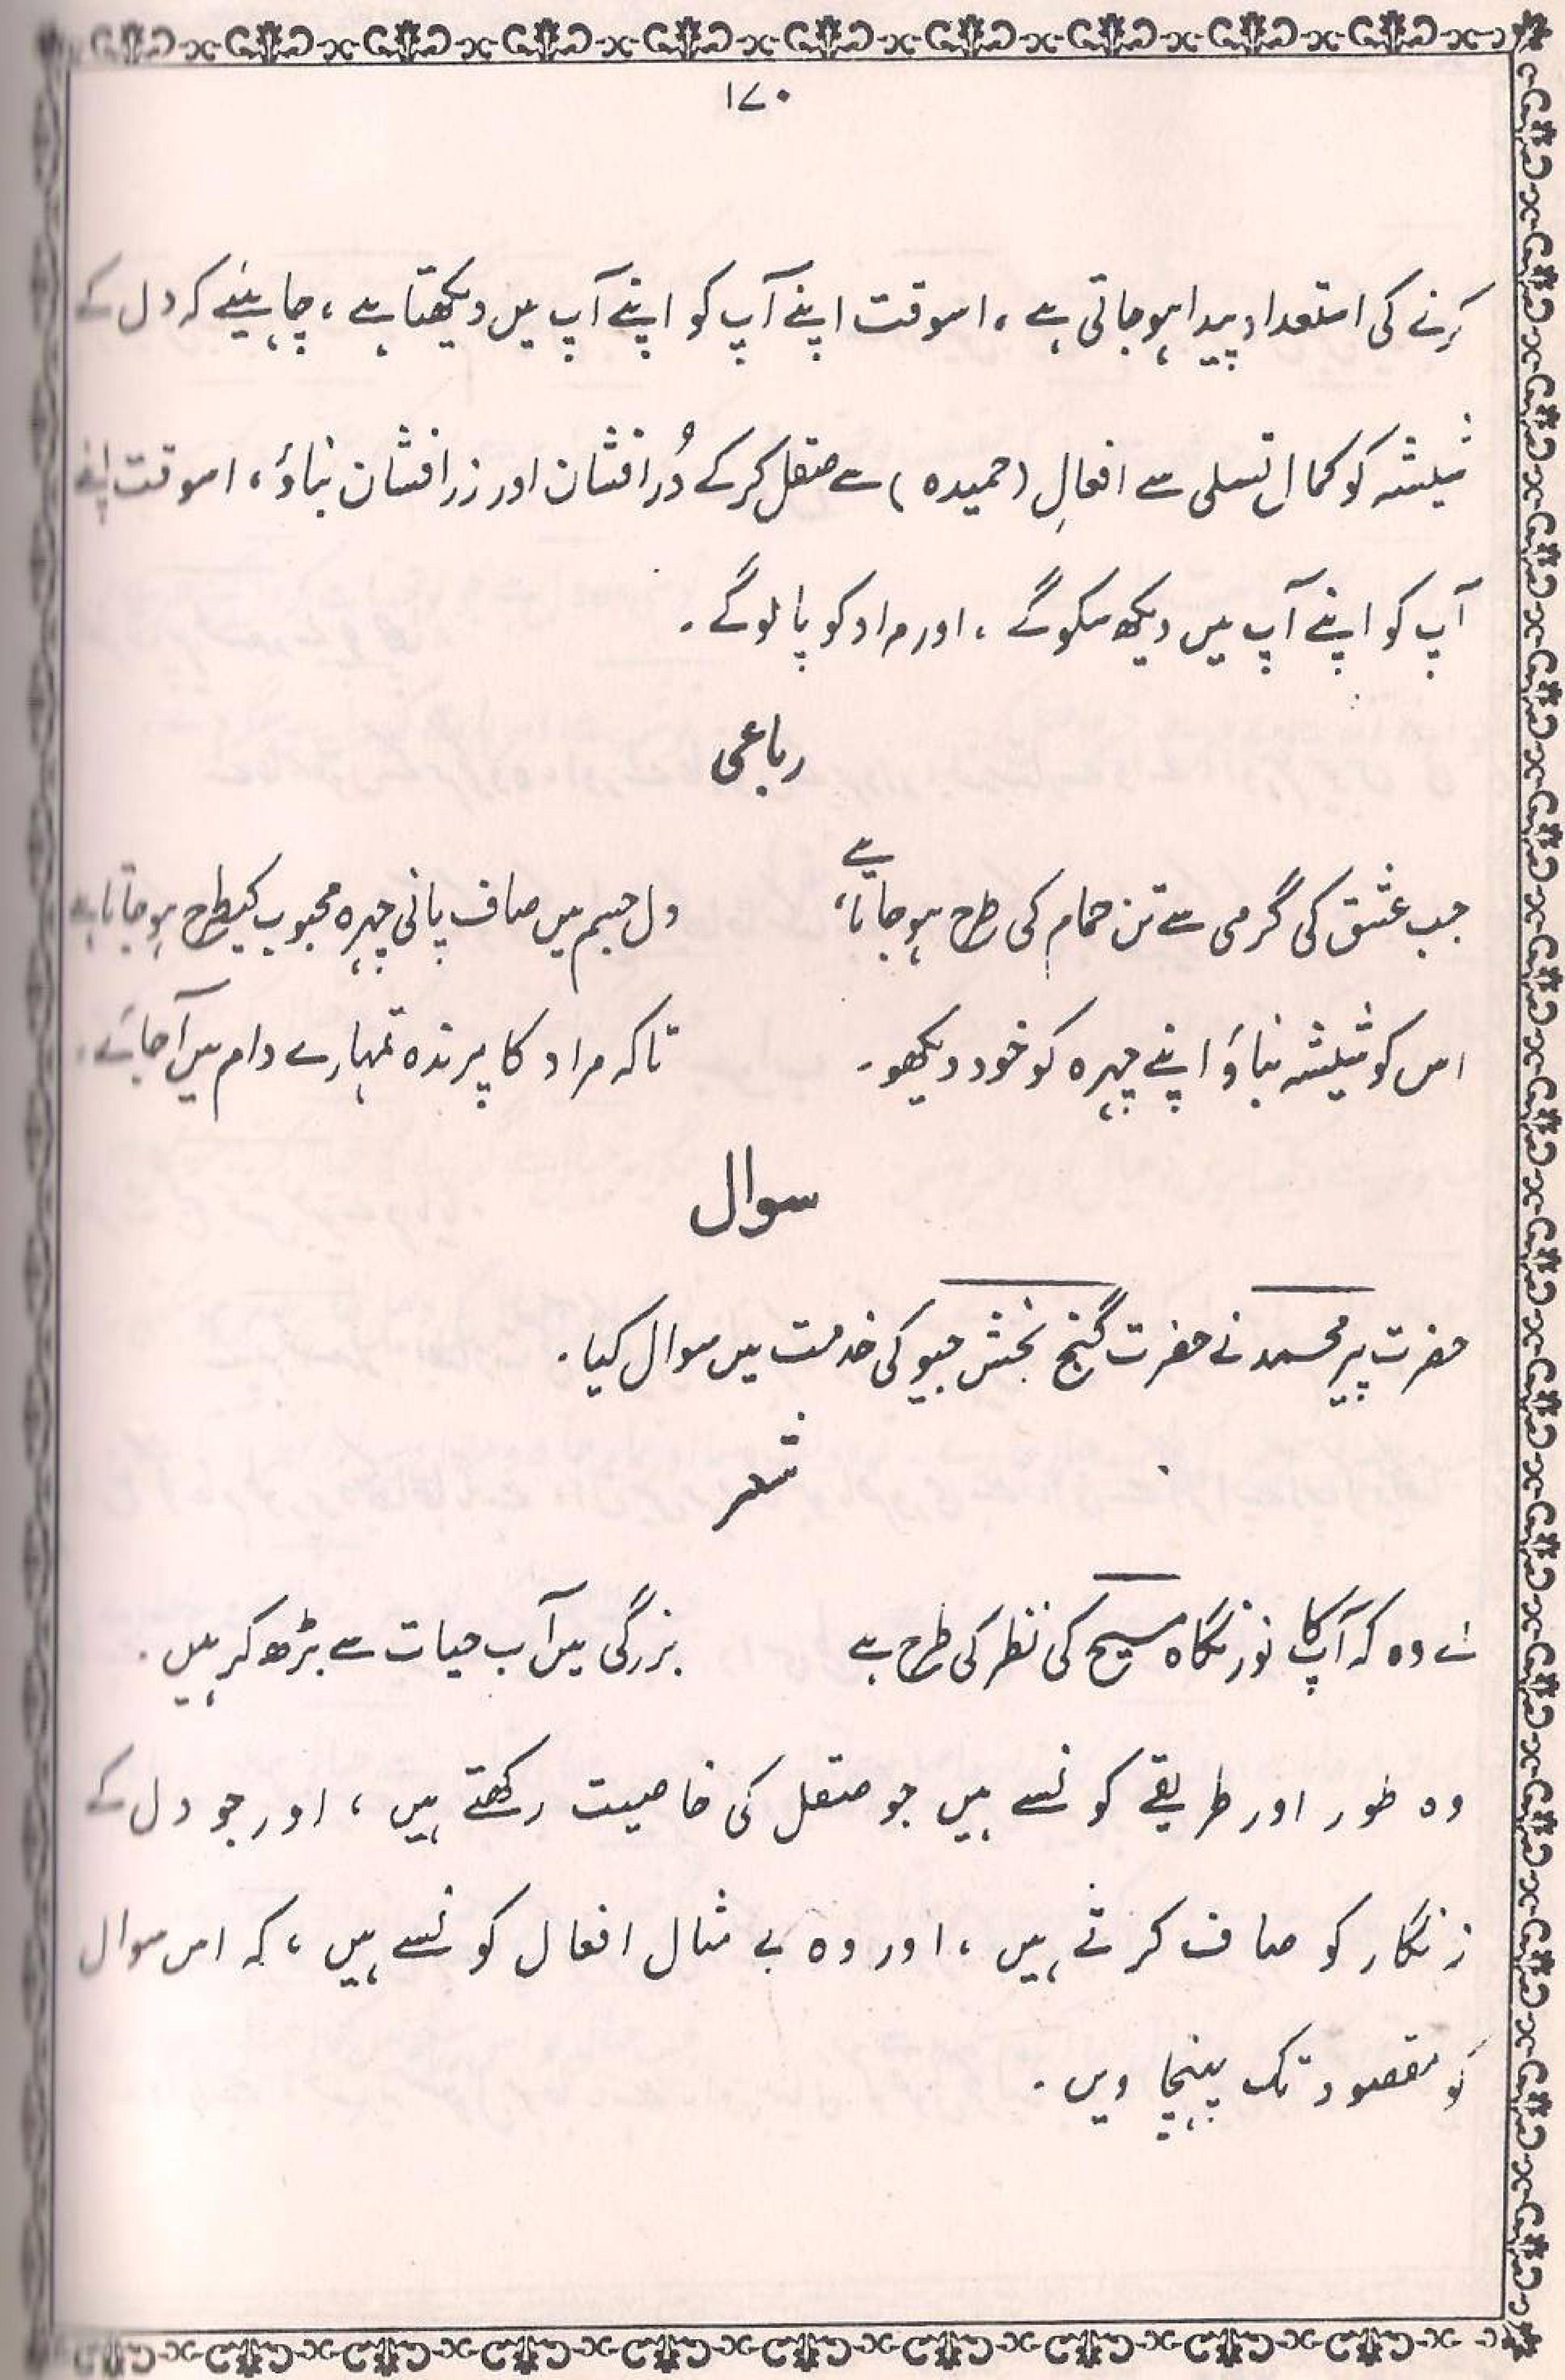 ۱۷۰
کرنے کی استعداد پیدا ہو جاتی ہے، اسوقت اپنے آپ کو اپنے آپ میں دیکھتا ہے، چاہیئے کہ دل کے
شیشہ کو کمال تسلی سے افعالِ (حمیدہ) سے صقل کر کے دُر افشان اور زر افشان بناؤ، اسوقت اپنے
آپ کو اپنے آپ میں دیکھ سکو گے، اور مراد کو پا لو گے۔
رباعی
جب عشق کی گرمی سے تن حمام کی طرح ہو جاتا ہے، دل جسم میں صاف پانی چہرہ محبوب کیطرح ہو جاتا ہے
اس کو شیشہ بناؤ اپنے چہرہ کو خود دیکھو۔ تاکہ مراد کا پرندہ تمہارے دام میں آ جائے۔
سوال
حضرت پیر محمد نے حضرت گنج بخش جیو کی خدمت میں سوال کیا۔
شعر
اے وہ کہ آپ کا نور نگاہ مسیح کی نظر کی طرح ہے بزرگی میں آب حیات سے بڑھ کر ہیں۔
وہ طور اور طریقے کونسے ہیں جو صقل کی خاصیت رکھتے ہیں، اور جو دل کے
زنگار کو صاف کرتے ہیں، اور وہ بے مثال افعال کونسے ہیں، کہ اس سوال
کو مقصود تک پہنچا دیں۔